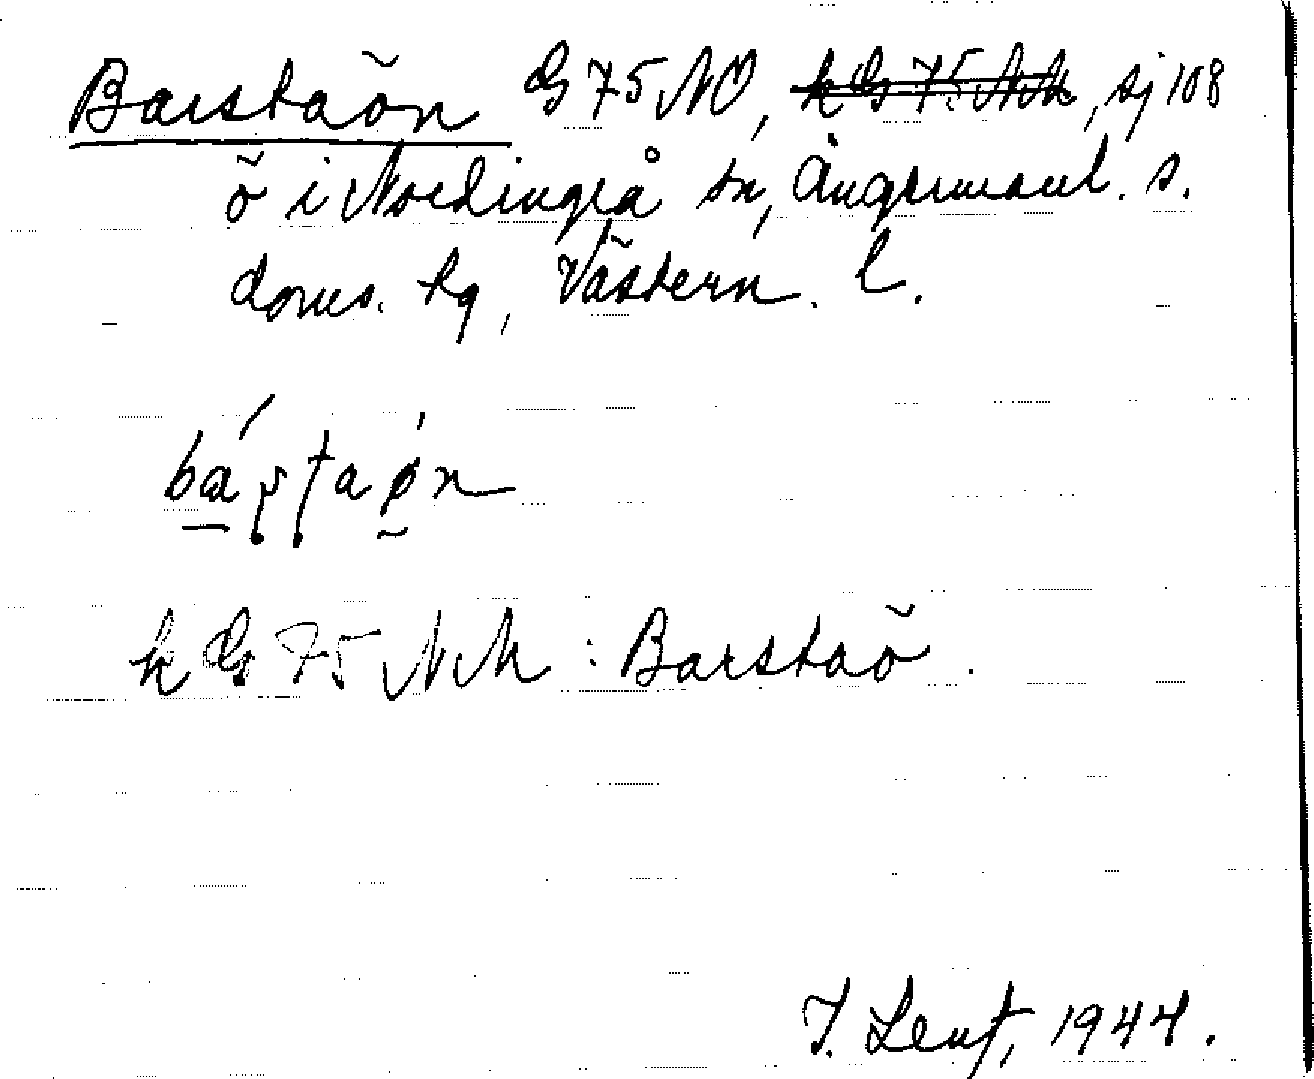 Barstaön G 75 NO, k G 75 NM, sj 108
ö i Nordingrå sn, Ångermanl. s.
doms. tg, Västern. l.
k G 75 NM : Barstaö.
1944.